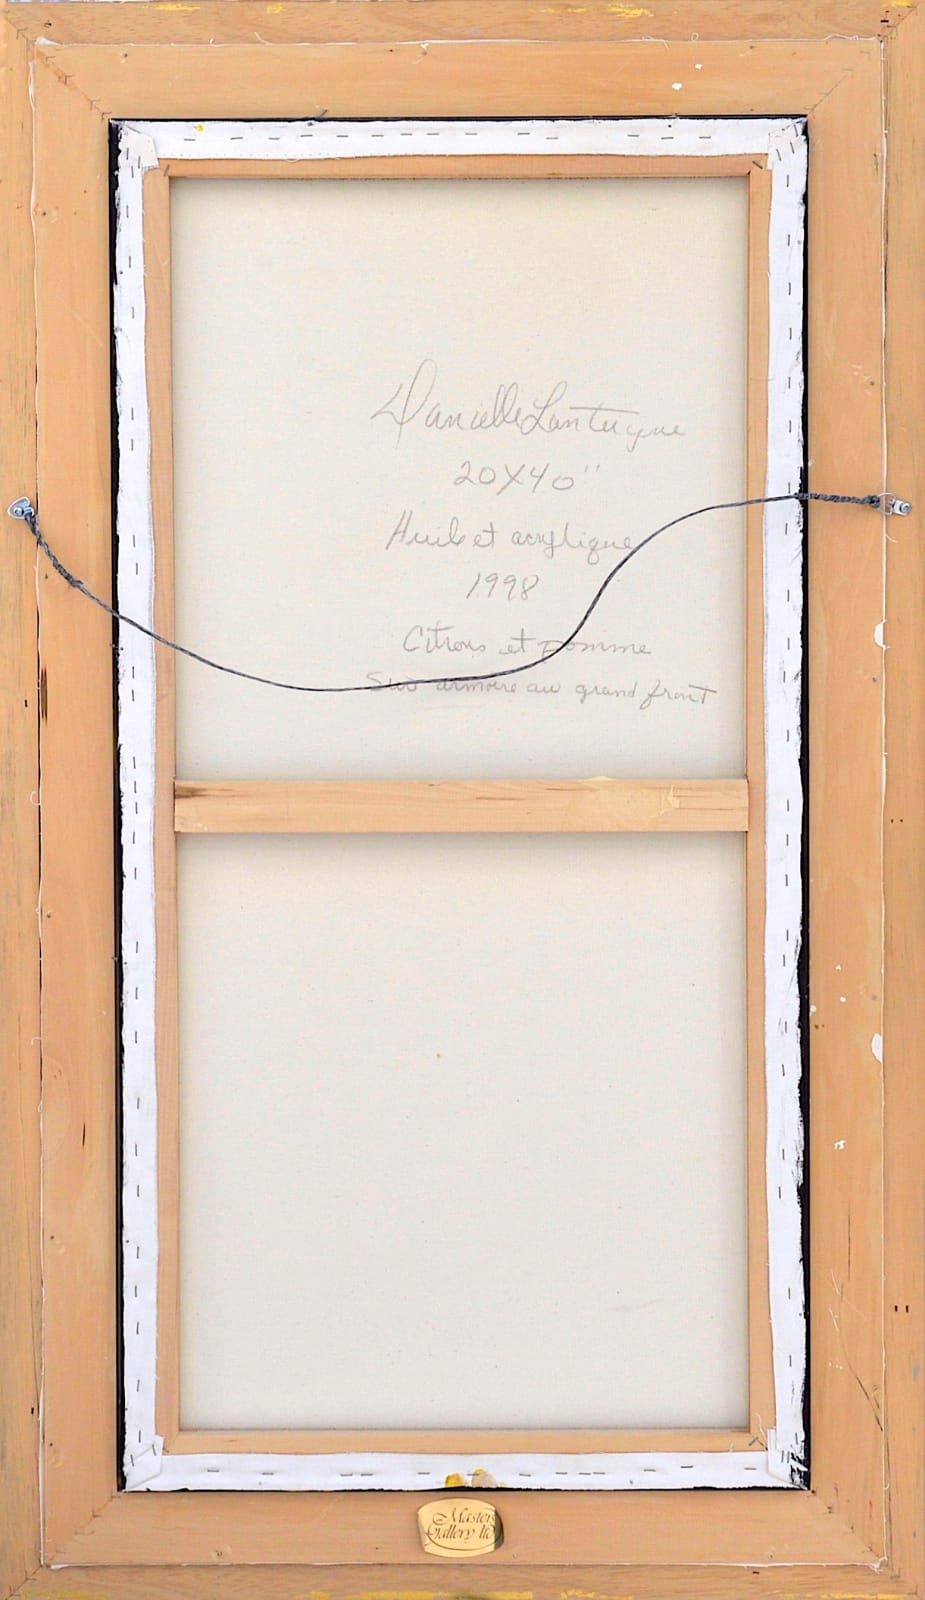 Danielle Lanteigne
20X40"
Huile et acrylique
1998
Citrons et pomme
Sur armoire au grand front
Masters
Gallery ltd